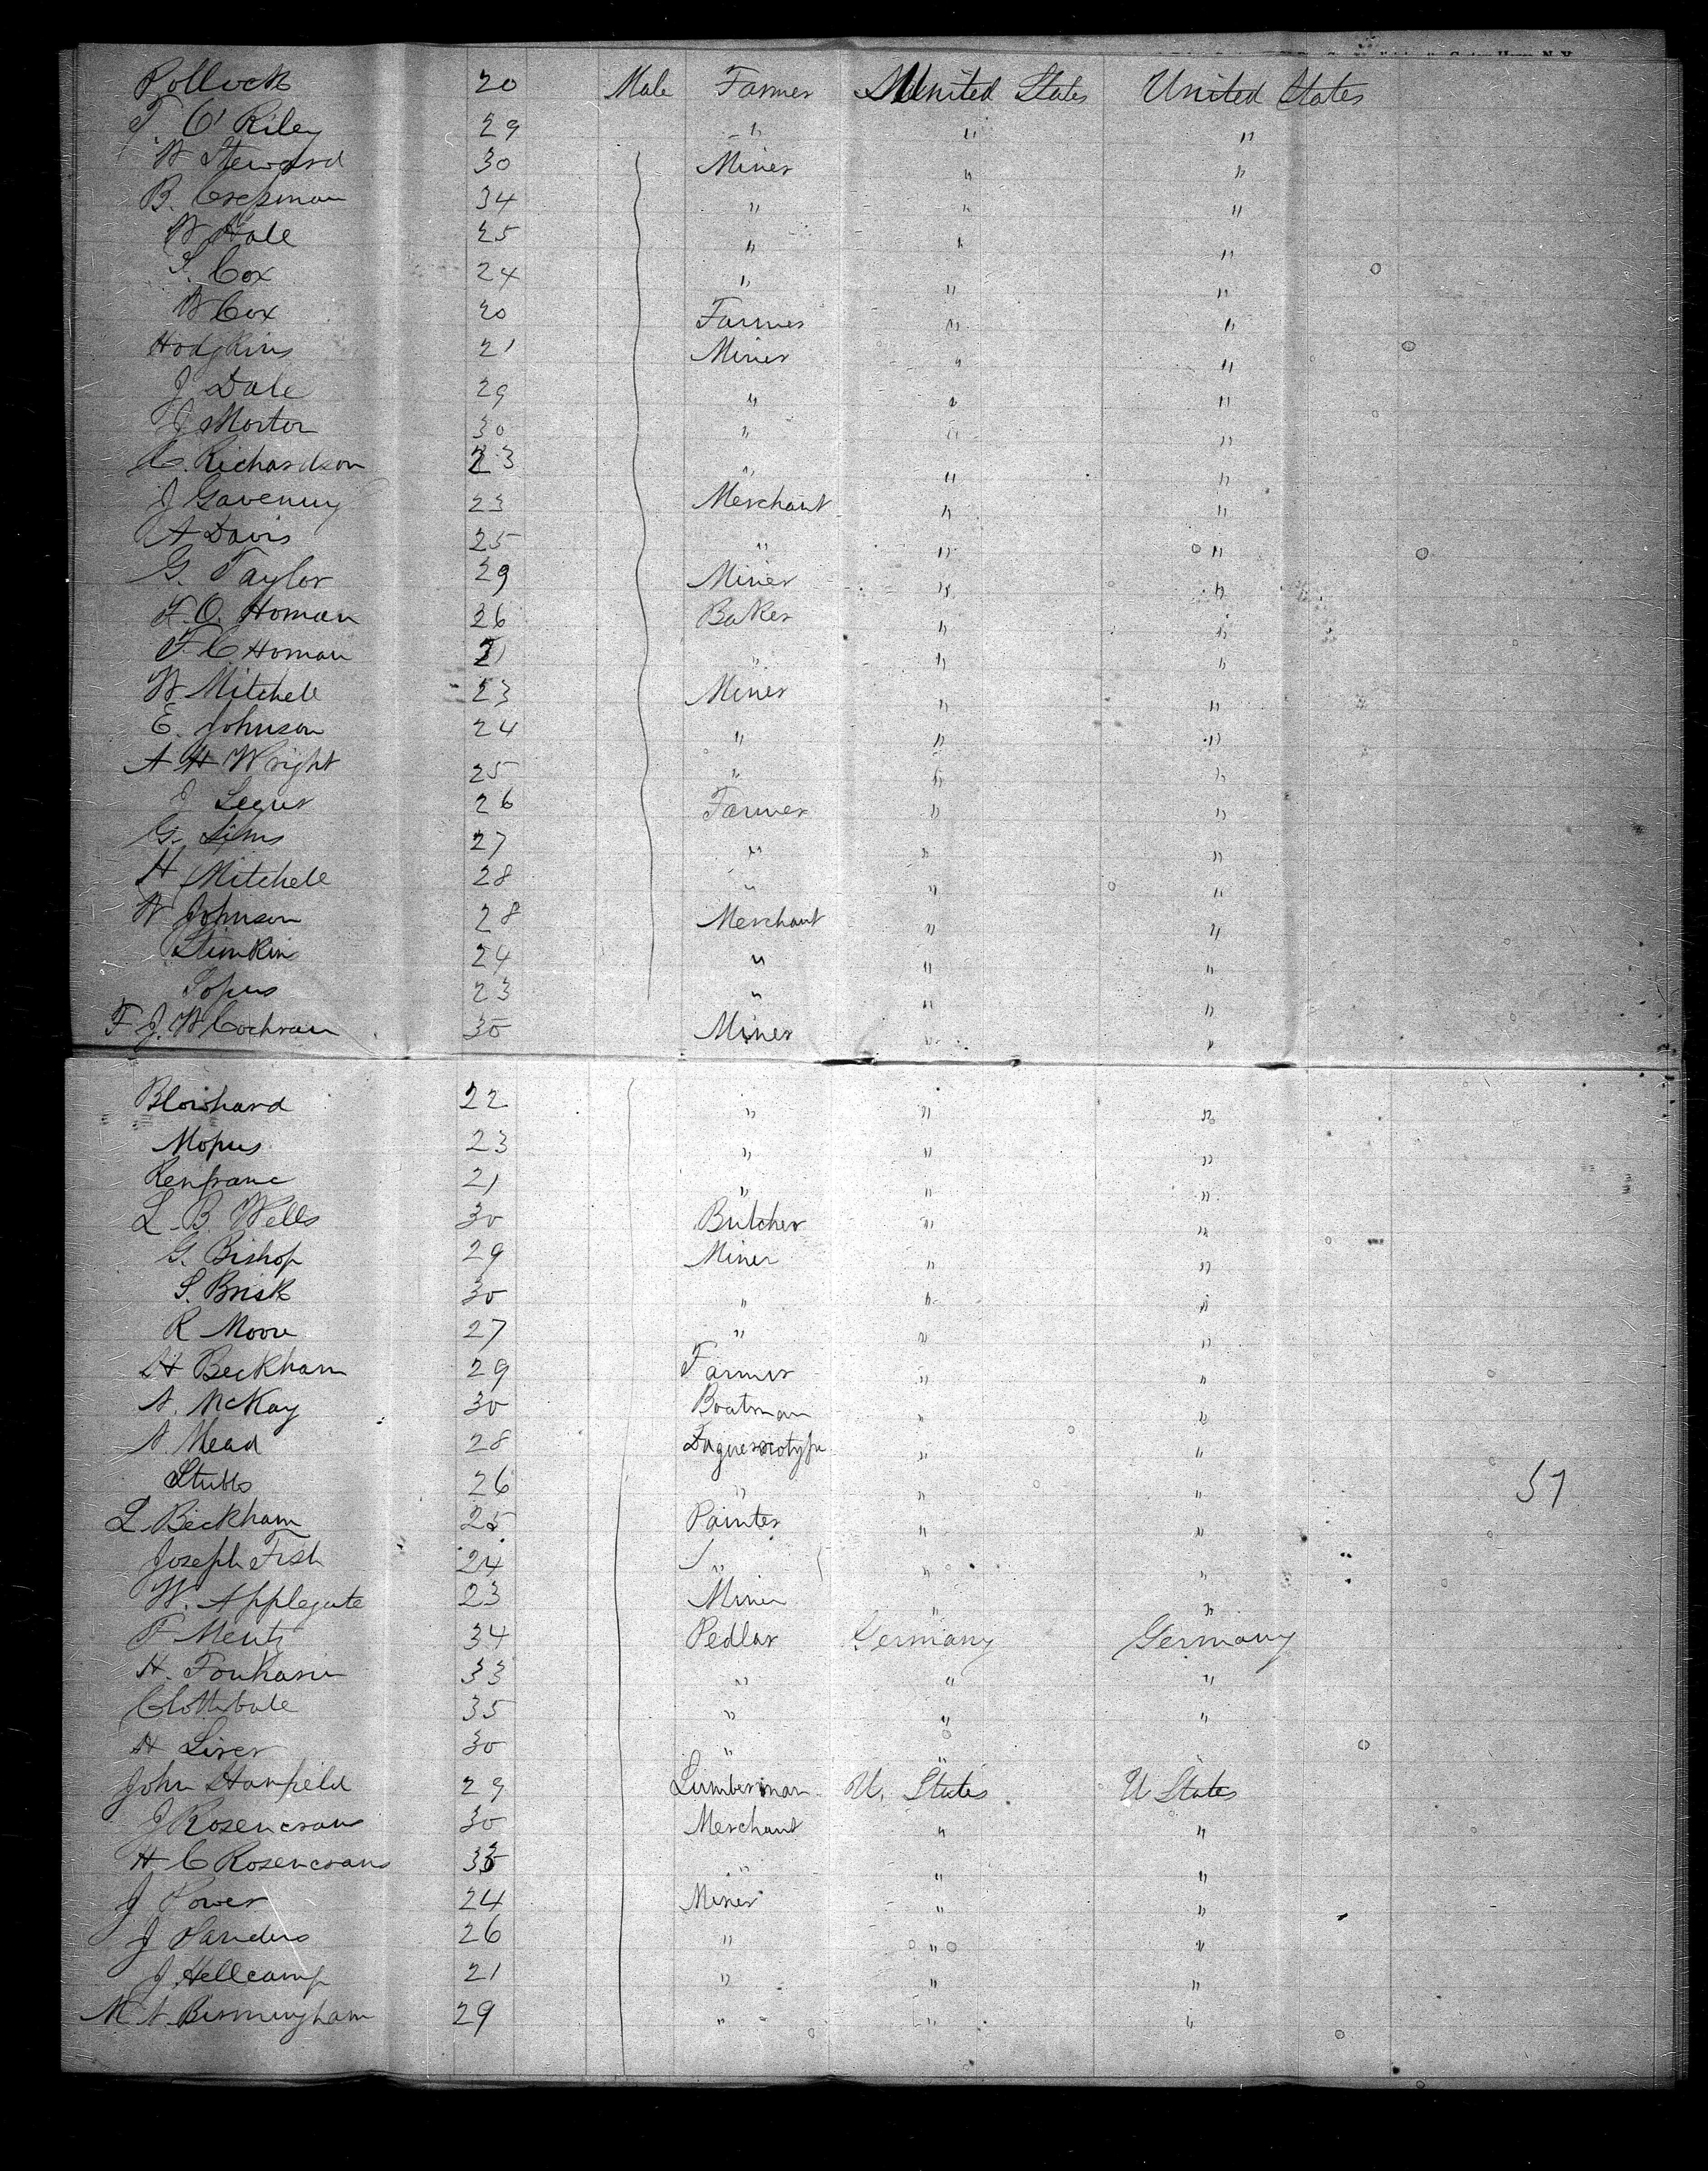 Pollock 20 Male Farmer United States United States
T. O'Riley 29 " " "
W Steward 30 Miner " "
B. Cressman 34 " " "
W Hale 25 " " "
S. Cox 24 " " "
W Cox 20 Farmer " "
Hodgkins 21 Miner " "
J Dale 29 " " "
J Morton 30 " " "
C. Richardson 23 " " "
J 23 Merchant " "
A Davis 25 " " "
G. Taylor 29 Miner " "
F. O. Homan 26 Baker " "
F. C Homan 21 " " "
W Mitchell 23 Miner " "
E. Johnson 24 " " "
A H Wright 25 " " "
J Segur 26 Farmer " "
G. Sims 27 " " "
H Mitchell 28 " " "
W Johnson 28 Merchant " "
Slimkin 24 " " "
Sopus 23 " " "
F J. W Cochran 30 Miner " "
Blowhard 22 " " "
Mopus 23 " " "
Renfranc 21 " " "
L. B. Wells 30 Butcher " "
G. Bishop 29 Miner " "
S. Brisk 30 " " "
R Moore 27 " " "
H Beckham 29 Farmer " "
A. McKay 30 Boatman " "
A. Mead 28 Daguerreotype " "
Stubbs 26 " " "
57
L Beckham 25 Painter " "
Joseph Fish 24 " " "
W. Applegate 23 Miner " "
F Mentz 34 Pedlar Germany Germany
H. 33 " " "
35 " " "
H Liver 30 " " "
John Hanfield 29 Lumberman U. States U States
J Rosencrans 30 Merchant " "
H C Rosencrans 35 " " "
J Power 24 Miner " "
J Sanders 26 " " "
J. Hellcamp 21 " " "
M A Birmingham 29 " " "